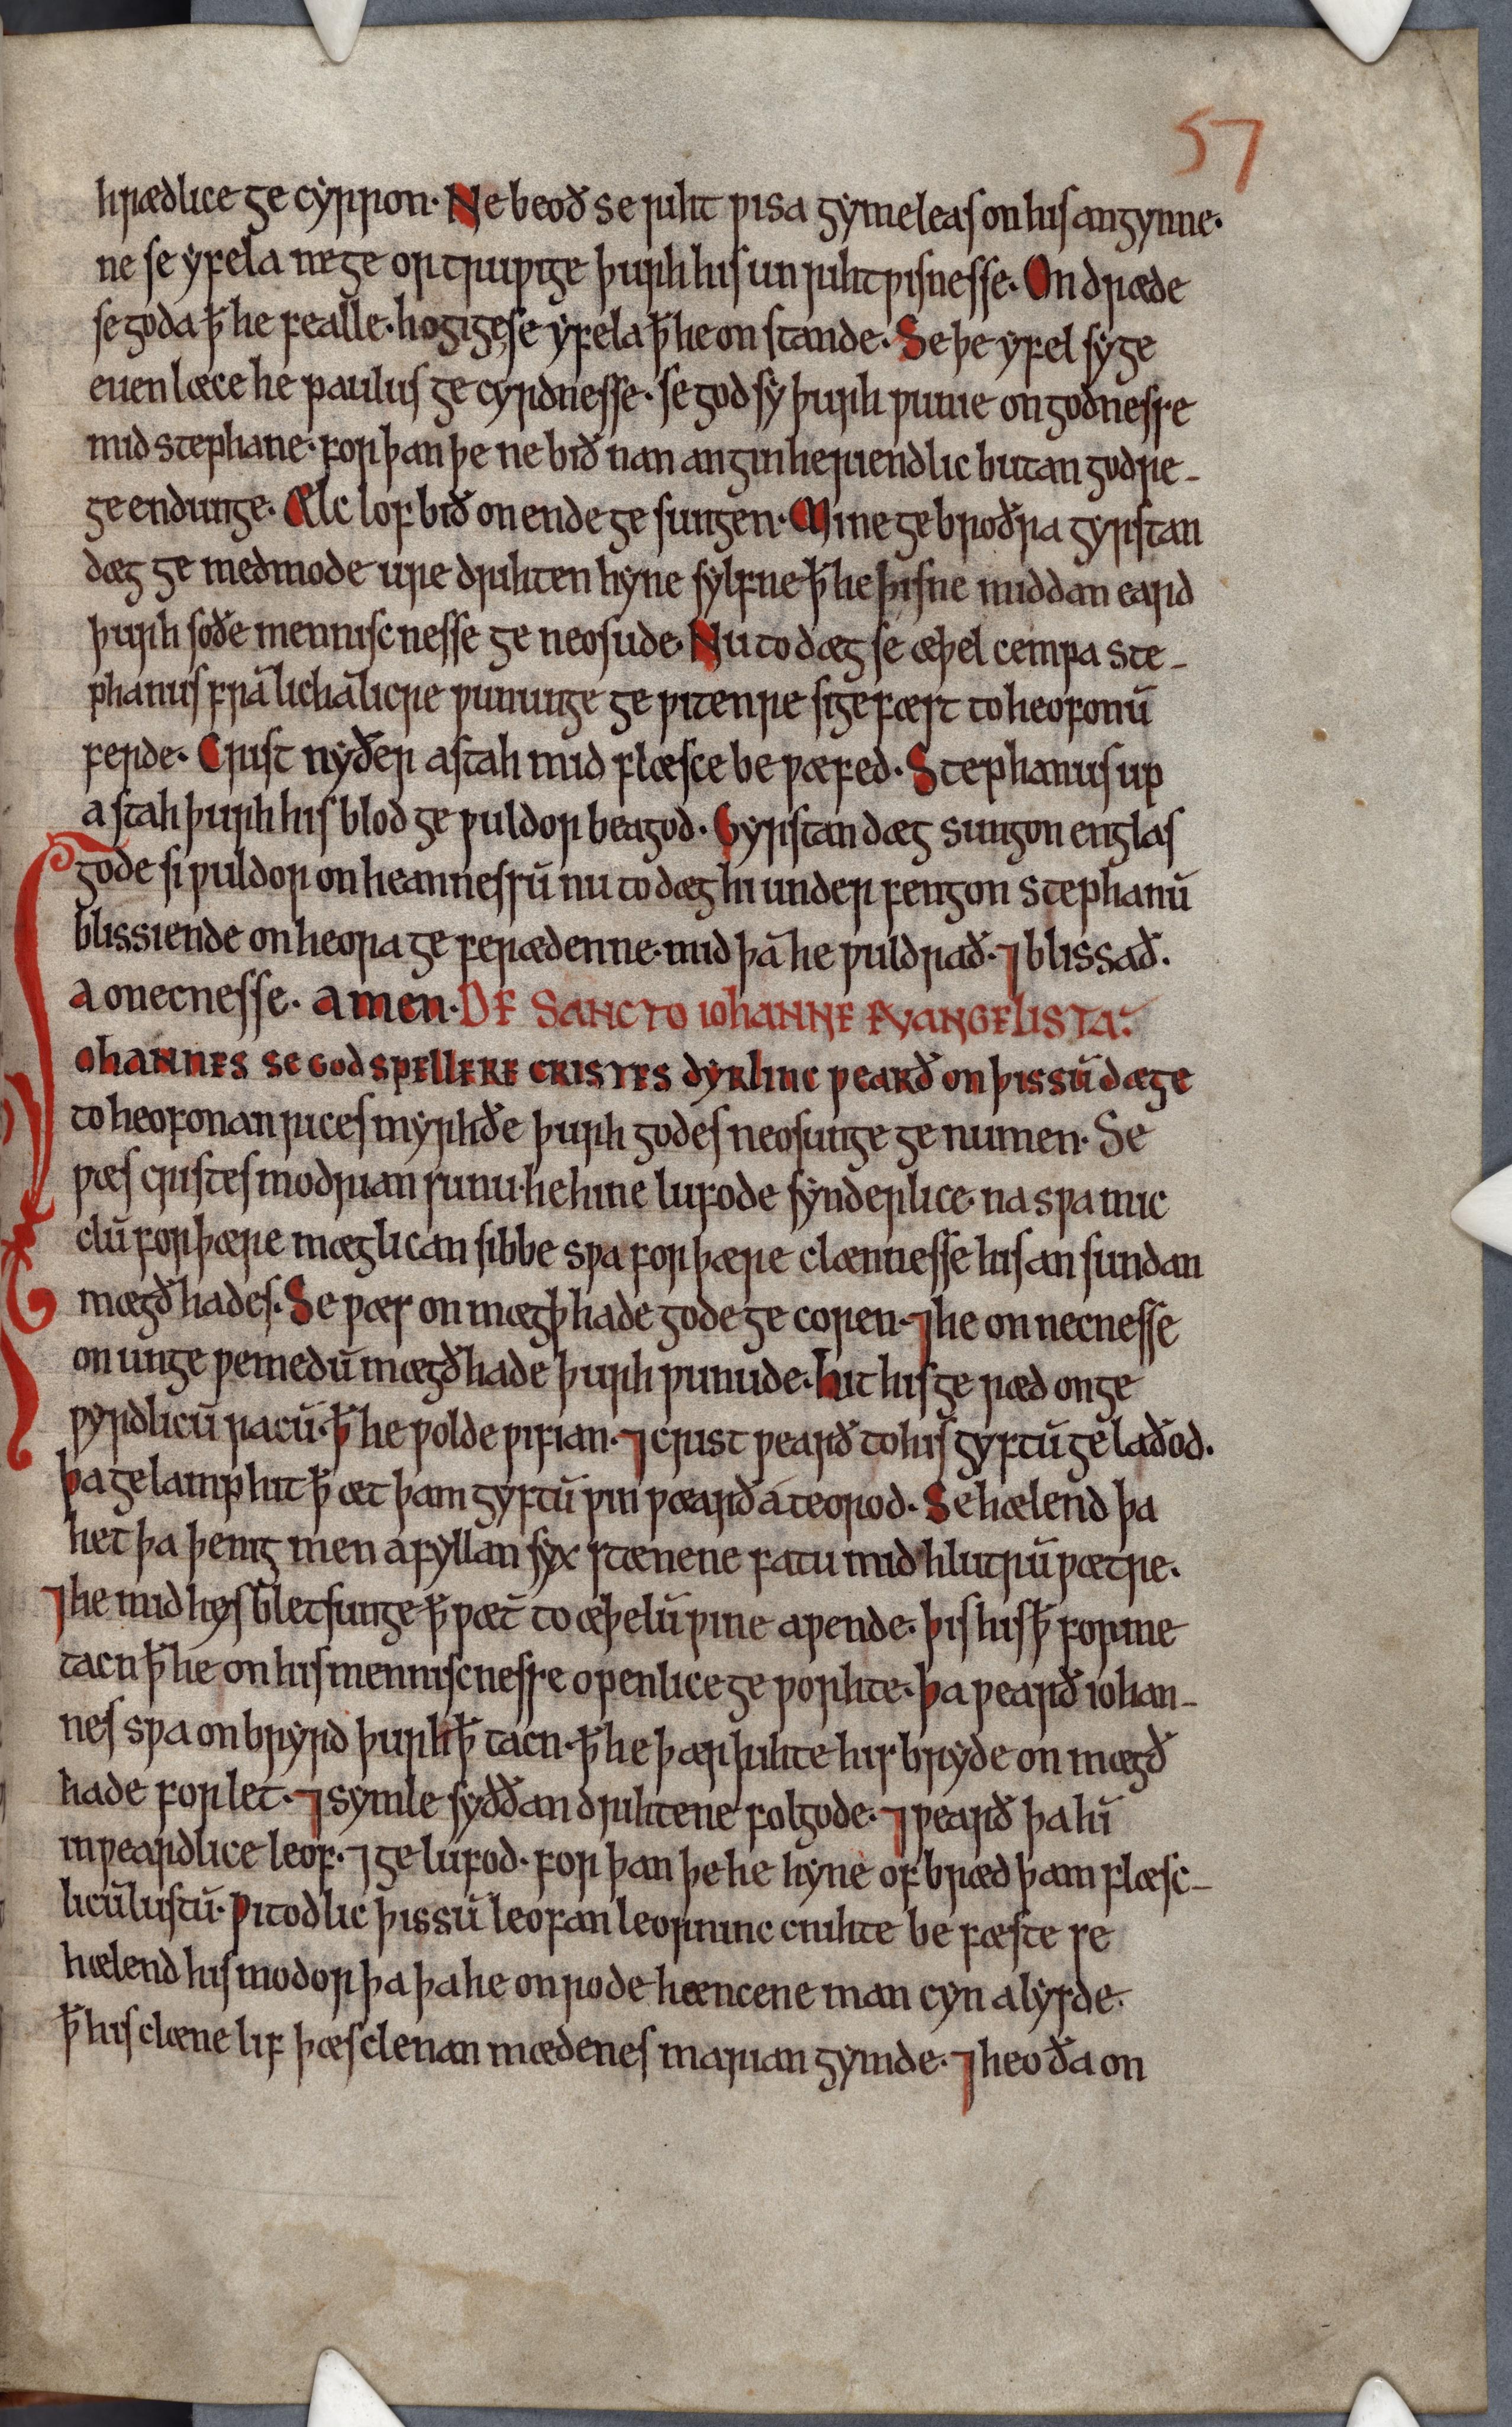 57
hrædlice ge cẏrron· Ne beoð se riht ƿisa gẏmeleas on his angynne·
ne se ẏfela ne ge ortruƿige þurh his un rihtƿisnesse· Ondræde
se goda ꝥ he fealle· hogige se ẏfela ꝥ he on stande· Se þe yfel sẏge
euenlæce he paulus ge cyrdnesse· se god sẏ þurh ƿunie on godnesse
mid stephane· for þan þe ne bið nan angin heriendlic butan godre-
ge endunge· Ælc lof bið on ende ge sungen· Mine ge broðra gyrstan
dæg ge medmode ure drihten hyne sylfne ꝥ he þisne middan eard
þurh soðe menniscnesse ge neosude· Nu to dæg se æþel cempa ste-
phanus frā lichālicre ƿununge ge ƿitenre sigefæst to heofonū
ferde· Crist nẏðer astah mid flæsce be ƿæfed· Stephanus up
astah þurh his blod ge ƿuldor beagod· Gyrstan dæg sungon englas
gode si ƿuldor on heannessū nu to dæg hi under fengon stephanū
blissiende on heora ge ferædenne· mid þā he ƿuldrað· ⁊ blissað·
a on ecnesse· amen· DE SANCTO IOHANNE EVANGELISTA:
IOHANNES SE GODSPELLERE CRISTES dẏrlinc ƿearð on þissū dæge
to heofonan rices mẏrhðe þurh godes neosunge ge numen· Se
ƿæs cristes modrian sunu· he hine lufode sẏnderlice· na sƿa mic
clū for þære mæglican sibbe sƿa for þære clænnesse his ansundan
mægð hades· Se ƿæs on mægþhade gode ge coren· ⁊ he on necnesse
on unge ƿemedū mægðhade þurh ƿunude· hit his ge ræd on ge
ƿyrdlicū racū· ꝥ he ƿolde ƿifian· ⁊ crist ƿearð to his gyftū ge laðod·
þa gelamp hit ꝥ æt þam gyftū ƿin ƿæarð ateorod· Se hælend þa
het þa þenig men afyllan sẏx stænene fatu mid hlutrū ƿætre·
⁊ he mid hẏs bletsunge ꝥ ƿæt̄ to æþelū ƿine aƿende· þis his ꝥ forme
tacn ꝥ he on his menniscnesse openlice ge ƿorhte· þa ƿearð iohan-
nes sƿa on brẏrd þurh ꝥ tacn· ꝥ he þær rihte his brẏde on mægð
hade forlet· ⁊ symle syððan drihtene folgode· ⁊ ƿearð þa hī
inƿeardlice leof· ⁊ ge lufod· for þan þe he hẏne of bræd þam flæsc-
licū lustū· Ƿitodlic þissū leofan leorninc cnihte be fæste se
hælend his modor þa þa he on rode hæncgene man cyn alẏsde·
ꝥ his clæne lif þæs clenan mædenes marian gẏmde· ⁊ heo ða on